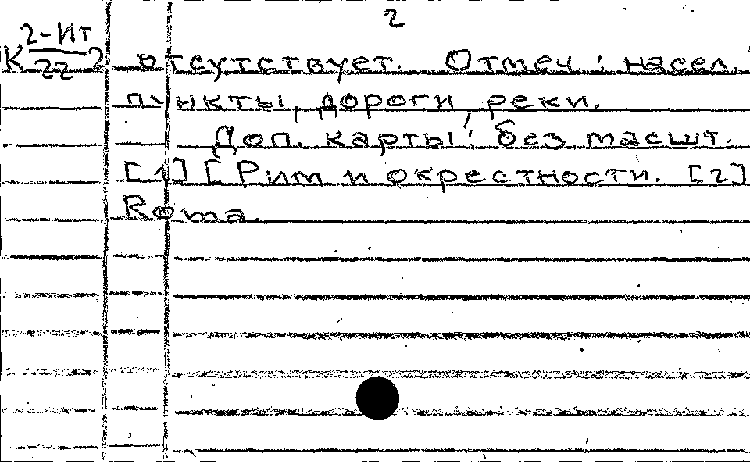 2
К 2-Ит/22 2
отсутствует. Отмеч: насел.
пункты, дороги, реки.
Доп. карты: без масшт.
[1] [Рим и окрестности. [2]
Roma.